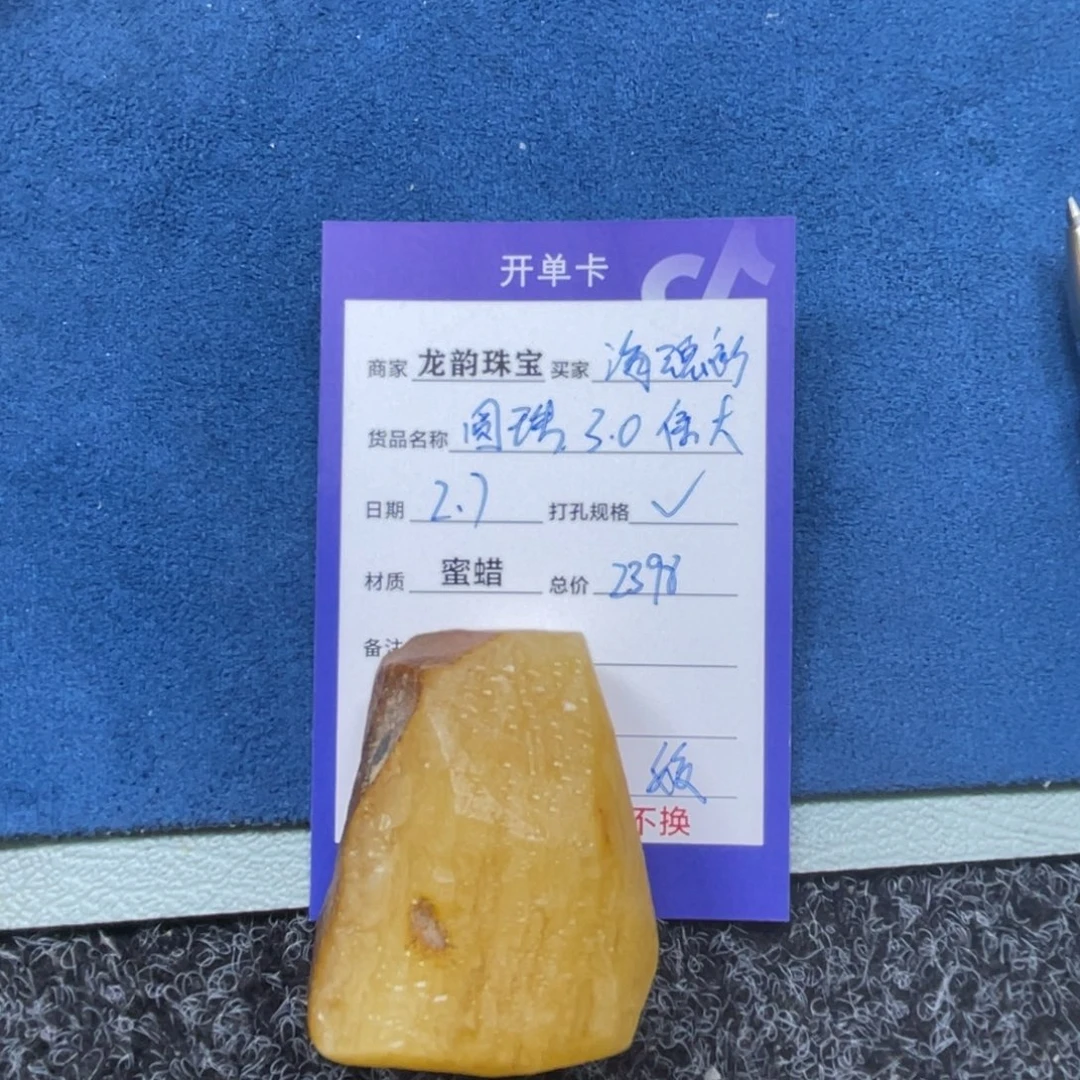 开单卡
商家 龙韵珠宝 买家 海
货品名称 圆珠 3.0 保大
日期 2.7 打孔规格 ✓
材质 蜜蜡 总价 2398
备注
不换